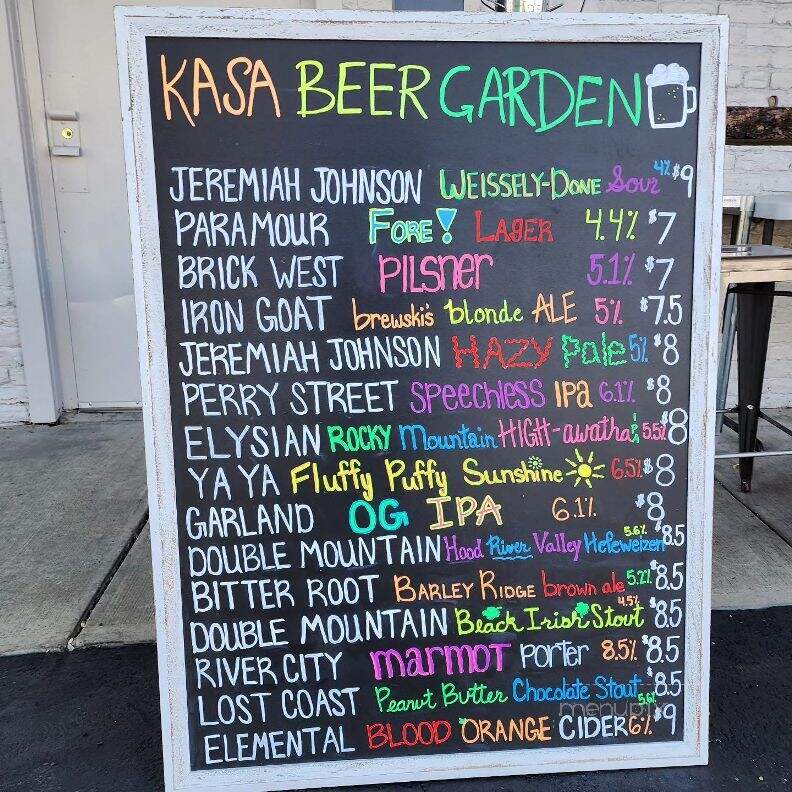 KASA BEER GARDEN
JEREMIAH JOHNSON WEISSELY-DONE Sour 4% $9
PARAMOUR FORE! LAGER 4.4% $7
BRICK WEST PILSNER 5.1% $7
IRON GOAT brewski's blonde ALE 5% $7.5
JEREMIAH JOHNSON HAZY Pale 5% $8
PERRY STREET SPEECHLESS IPA 6.1% $8
ELYSIAN ROCKY Mountain HIGH-awatha! 5.5% $8
YA YA Fluffy Puffy Sunshine 6.5% $8
GARLAND OG IPA 6.1% $8
DOUBLE MOUNTAIN Hood River Valley Hefeweizen 5.6% $8.5
BITTER ROOT BARLEY RIDGE brown ale 5.2% $8.5
DOUBLE MOUNTAIN Black Irish Stout 4.5% $8.5
RIVER CITY marmot Porter 8.5% $8.5
LOST COAST Peanut Butter Chocolate Stout 5.6% $8.5
menupix
ELEMENTAL BLOOD ORANGE CIDER 6% $9